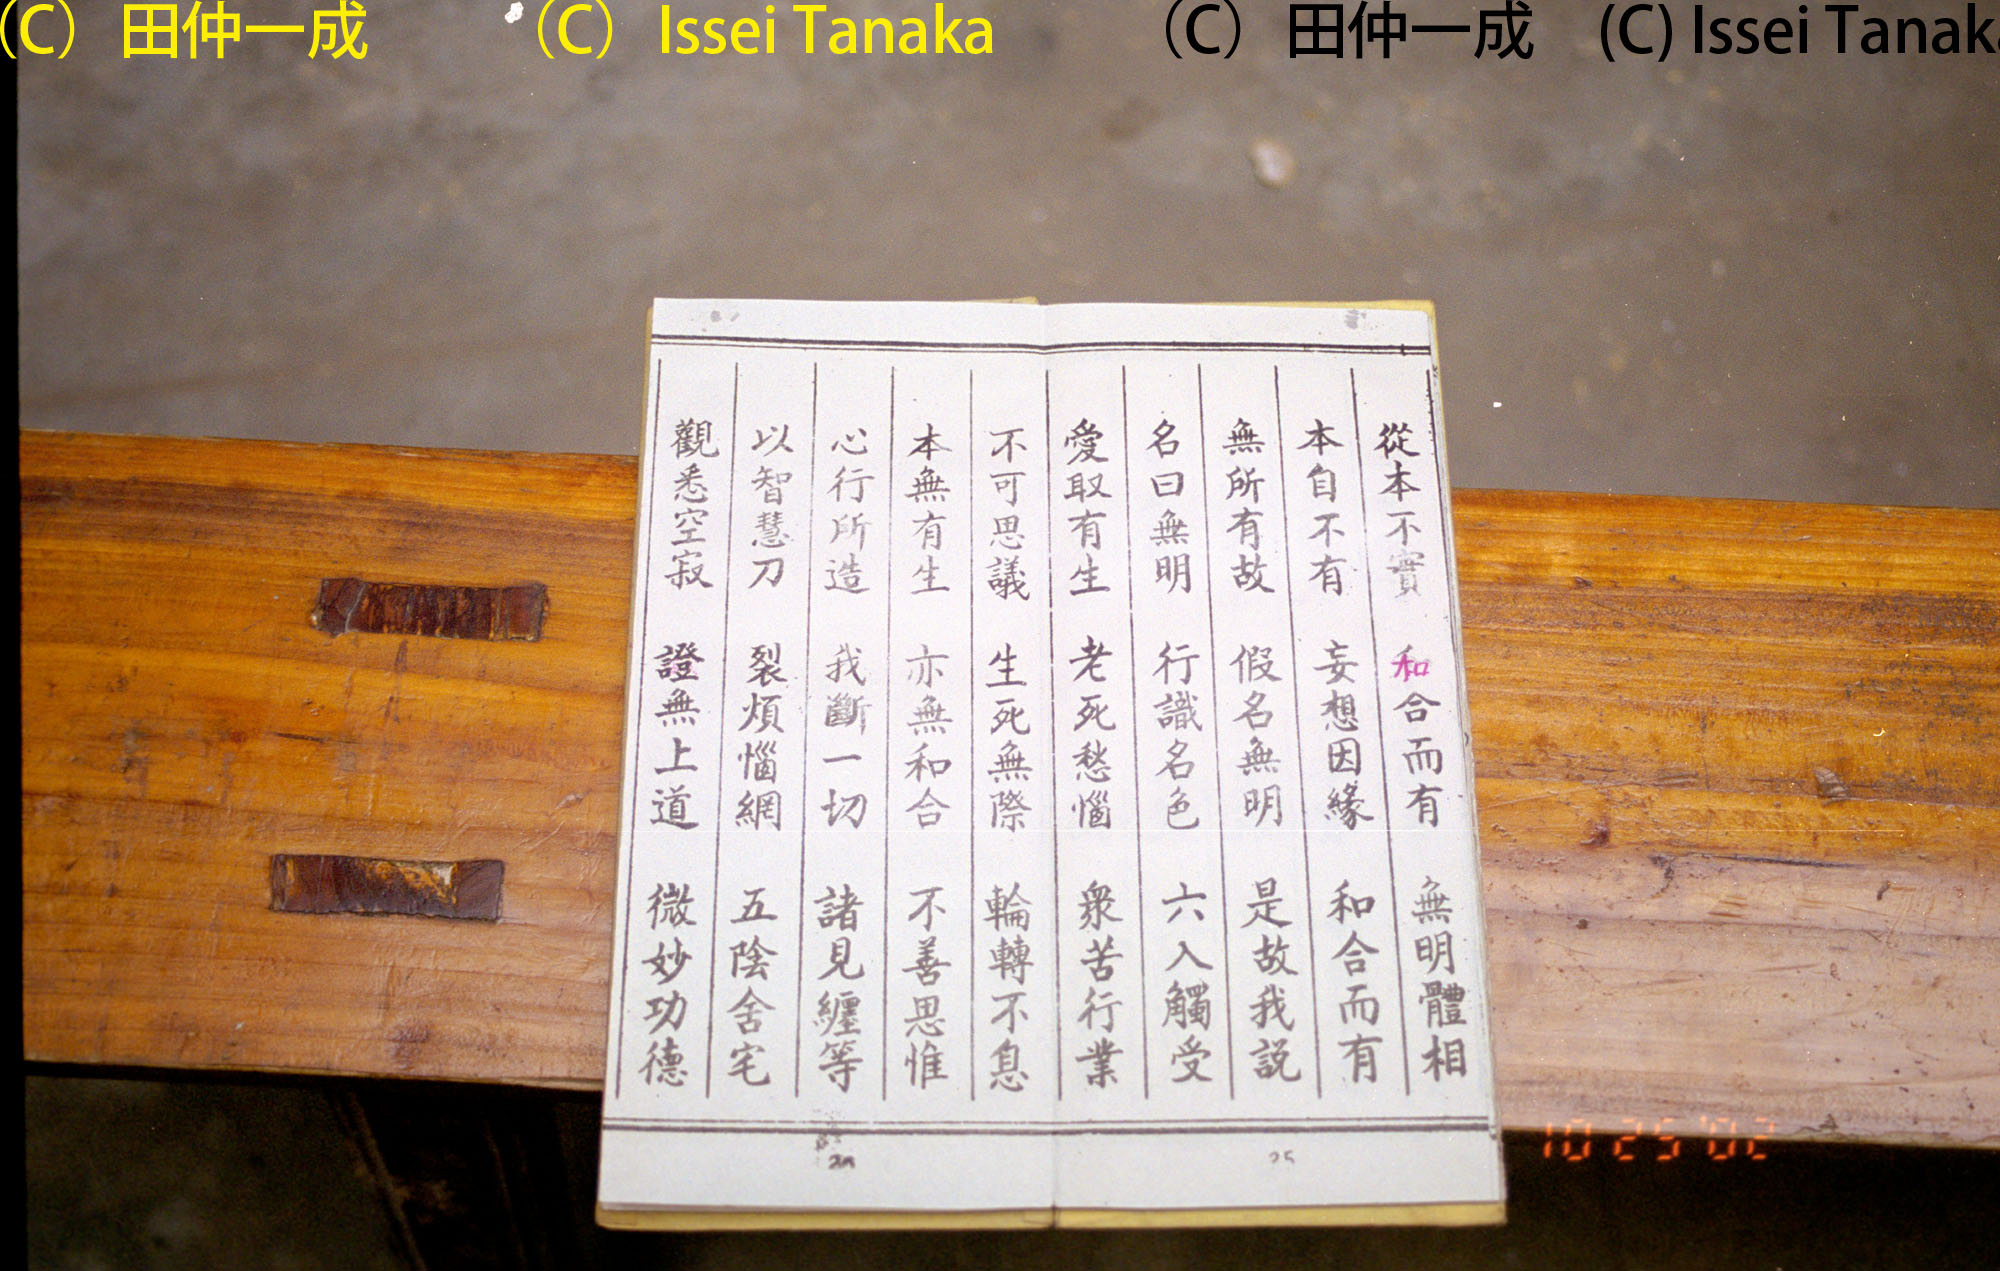 (C) 田仲一成 (C) Issei Tanaka (C) 田仲一成 (C) Issei Tanaka
從本不實 和合而有 無明體相
本自不有 妄想因緣 和合而有
無所有故 假名無明 是故我説
名曰無明 行識名色 六入觸受
愛取有生 老死愁惱 衆苦行業
不可思議 生死無際 輪轉不息
本無有生 亦無和合 不善思惟
心行所造 我斷一切 諸見纏等
以智慧刀 裂煩惱網 五陰舍宅
觀悉空寂 證無上道 微妙功德
25
10 25 '02